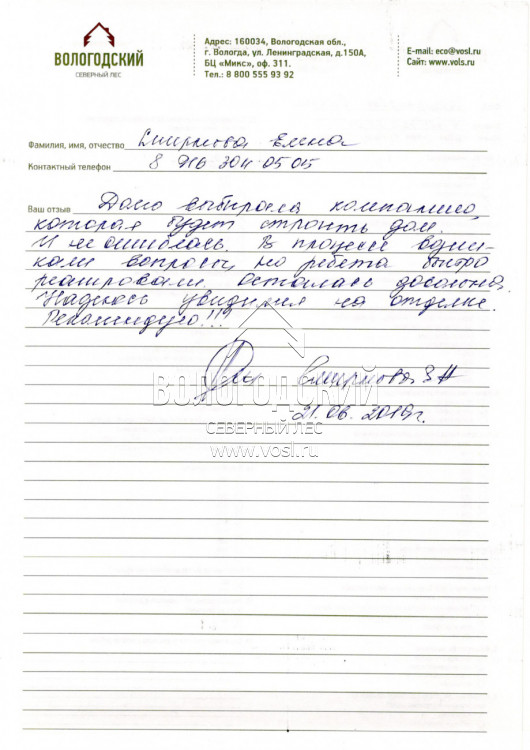 ВОЛОГОДСКИЙ
СЕВЕРНЫЙ ЛЕС
Адрес: 160034, Вологодская обл.,
г. Вологда, ул. Ленинградская, д.150А,
БЦ «Микс», оф. 311.
Тел.: 8 800 555 93 92
E-mail: eco@vosl.ru
Сайт: www.vols.ru
Фамилия, имя, отчество Смирнова Елена
Контактный телефон 8 916 304 05 05
Ваш отзыв Долго выбирала компанию,
которая будет строить дом.
И не ошиблась. В процессе возни-
кали вопросы, но ребята быстро
реагировали. Осталась довольна.
Надеюсь увидимся на отделке.
Рекомендую!!!
Смирнова
21.06.2019г.
ВОЛОГОДСКИЙ
СЕВЕРНЫЙ ЛЕС
www.vosl.ru
ВОЛОГОДСКИЙ
СЕВЕРНЫЙ ЛЕС
www.vosl.ru